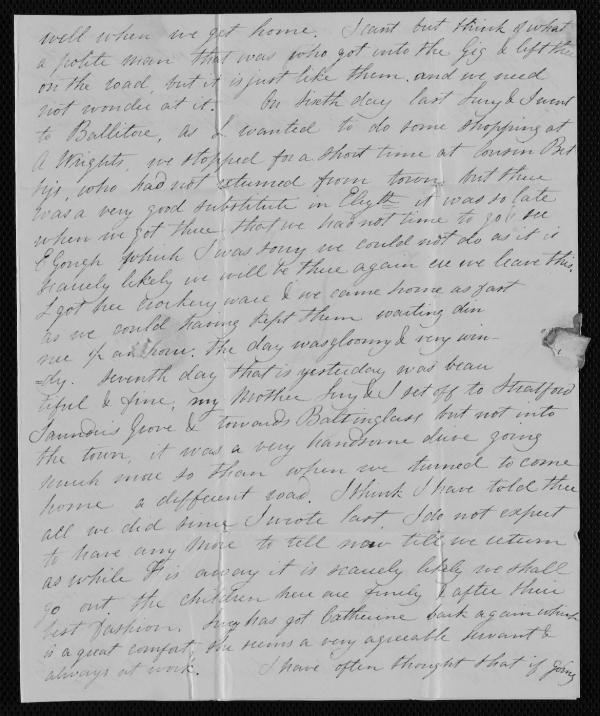 well when we get home. I cant but think of what
a polite man that was who got into the Gig & left the
on the road, but it is just like them. and we need
not wonder at it. On sixth day last Lucy & I went
to Ballitore, as I wanted to do some shopping at
A Wrights, we stopped for a short time at Cousin Bet
sys, who had not returned from town but there
was a very good substitute in Elizth it was so late
when we got there that we had not time to go & see
E Gough which I was sorry we could not do as it is
scarcely likely we will be there again ere we leave this.
I got her crockery ware & we came home as fast
as we could having kept them waiting din
ner of an hour. the day was gloomy & very win-
-dy. seventh day that is yesterday was beau
tiful & fine, my Mother Lucy & I set off to Stratford
Saunders Grove & towards Baltinglass but not into
the town, it was a very handsome drive going
much more so than when we turned to come
home a different road. I think I have told thee
all we did since I wrote last, I do not expect
to have any more to tell now till we return
as while is away it is scarcely likely we shall
go out. the children here are finely & after their
best fashion. Lucy has got Catherine back again which
is a great comfort, she seems a very agreeable servant &
always at work. I have often thought that if going